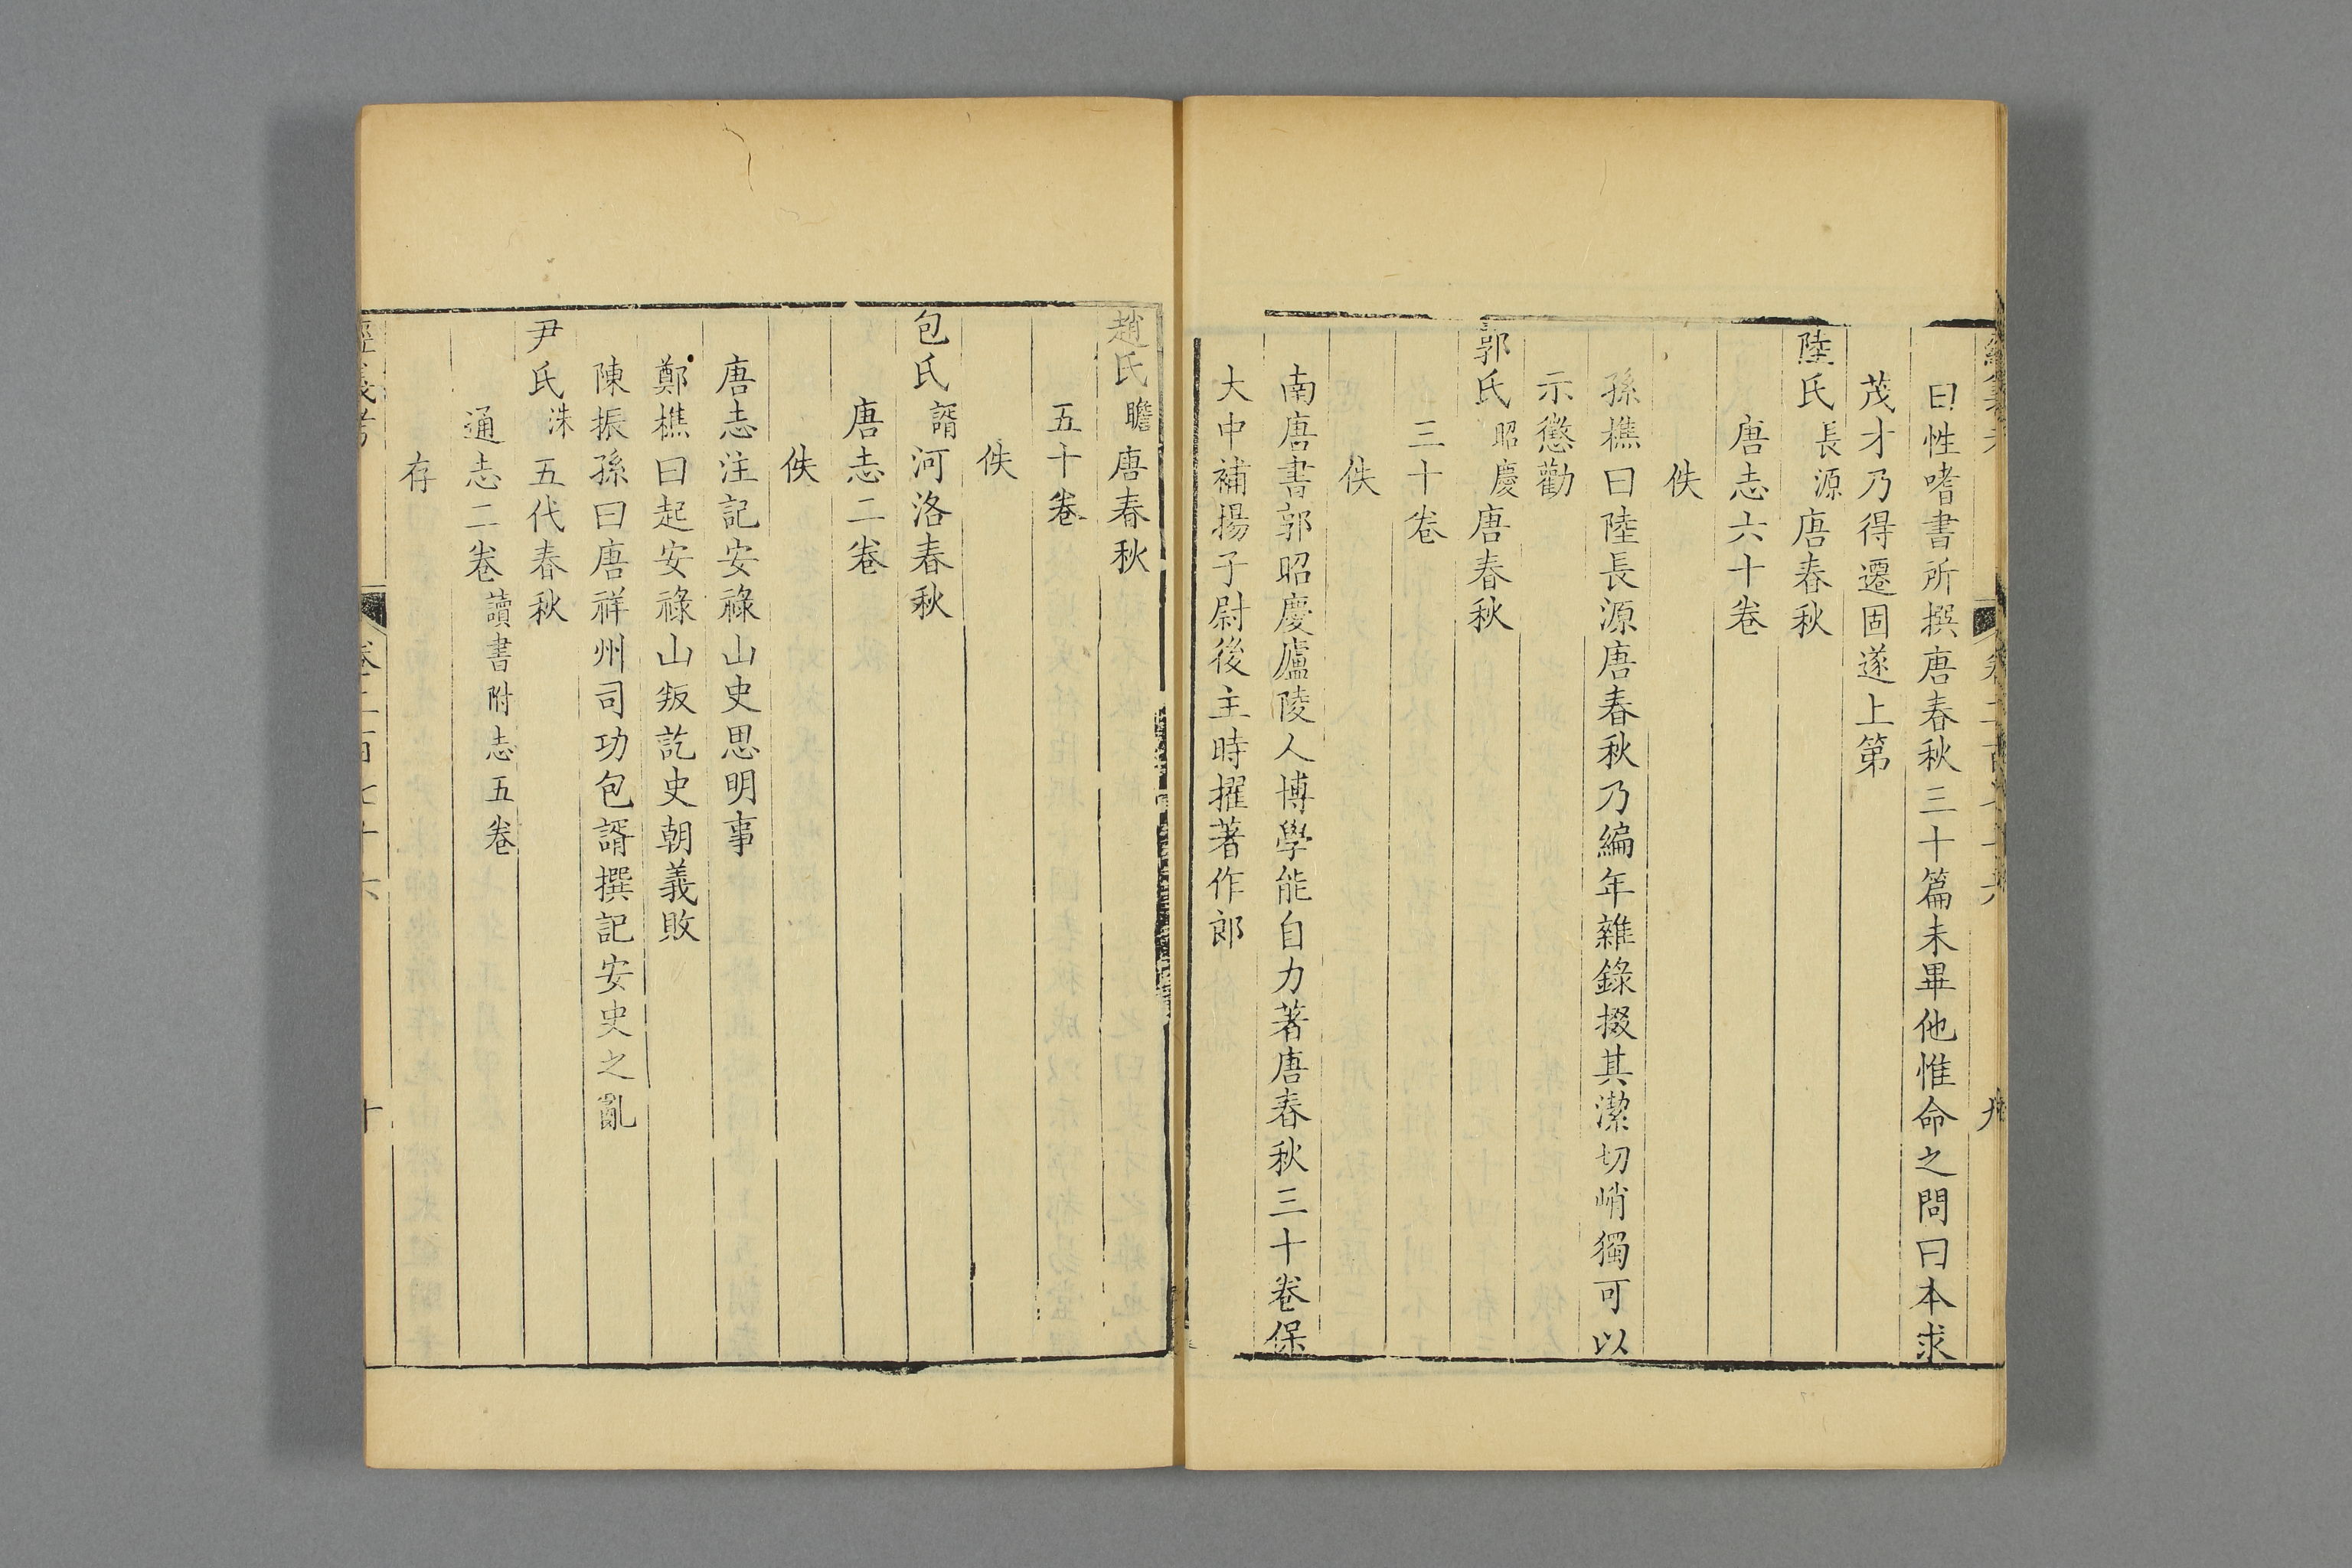 曰性嗜書所撰唐春秋三十篇未畢他惟命之問曰本求
茂才乃得遷固遂上第
陸氏長源唐春秋
唐志六十卷
佚
孫樵曰陸長源唐春秋乃編年雜錄掇其潔切峭獨可以
示懲勸
郭氏昭慶唐春秋
三十卷
佚
南唐書郭昭慶廬陵人博學能自力著唐春秋三十卷保
大中補揚子尉後主時擢著作郎
趙氏瞻唐春秋
五十卷
佚
包氏諝河洛春秋
唐志二卷
佚
唐志注記安祿山史思明事
鄭樵曰起安祿山叛訖史朝義敗
陳振孫曰唐祥州司功包諝撰記安史之亂
尹氏洙五代春秋
通志二卷讀書附志五卷
存
經義考 卷二百七十六 十